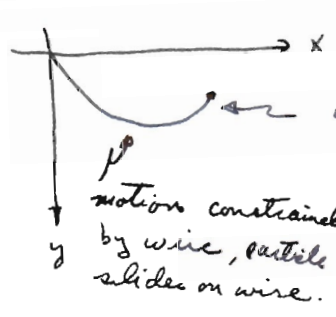 x
y
motion constrained
by wire, particle
slides on wire.